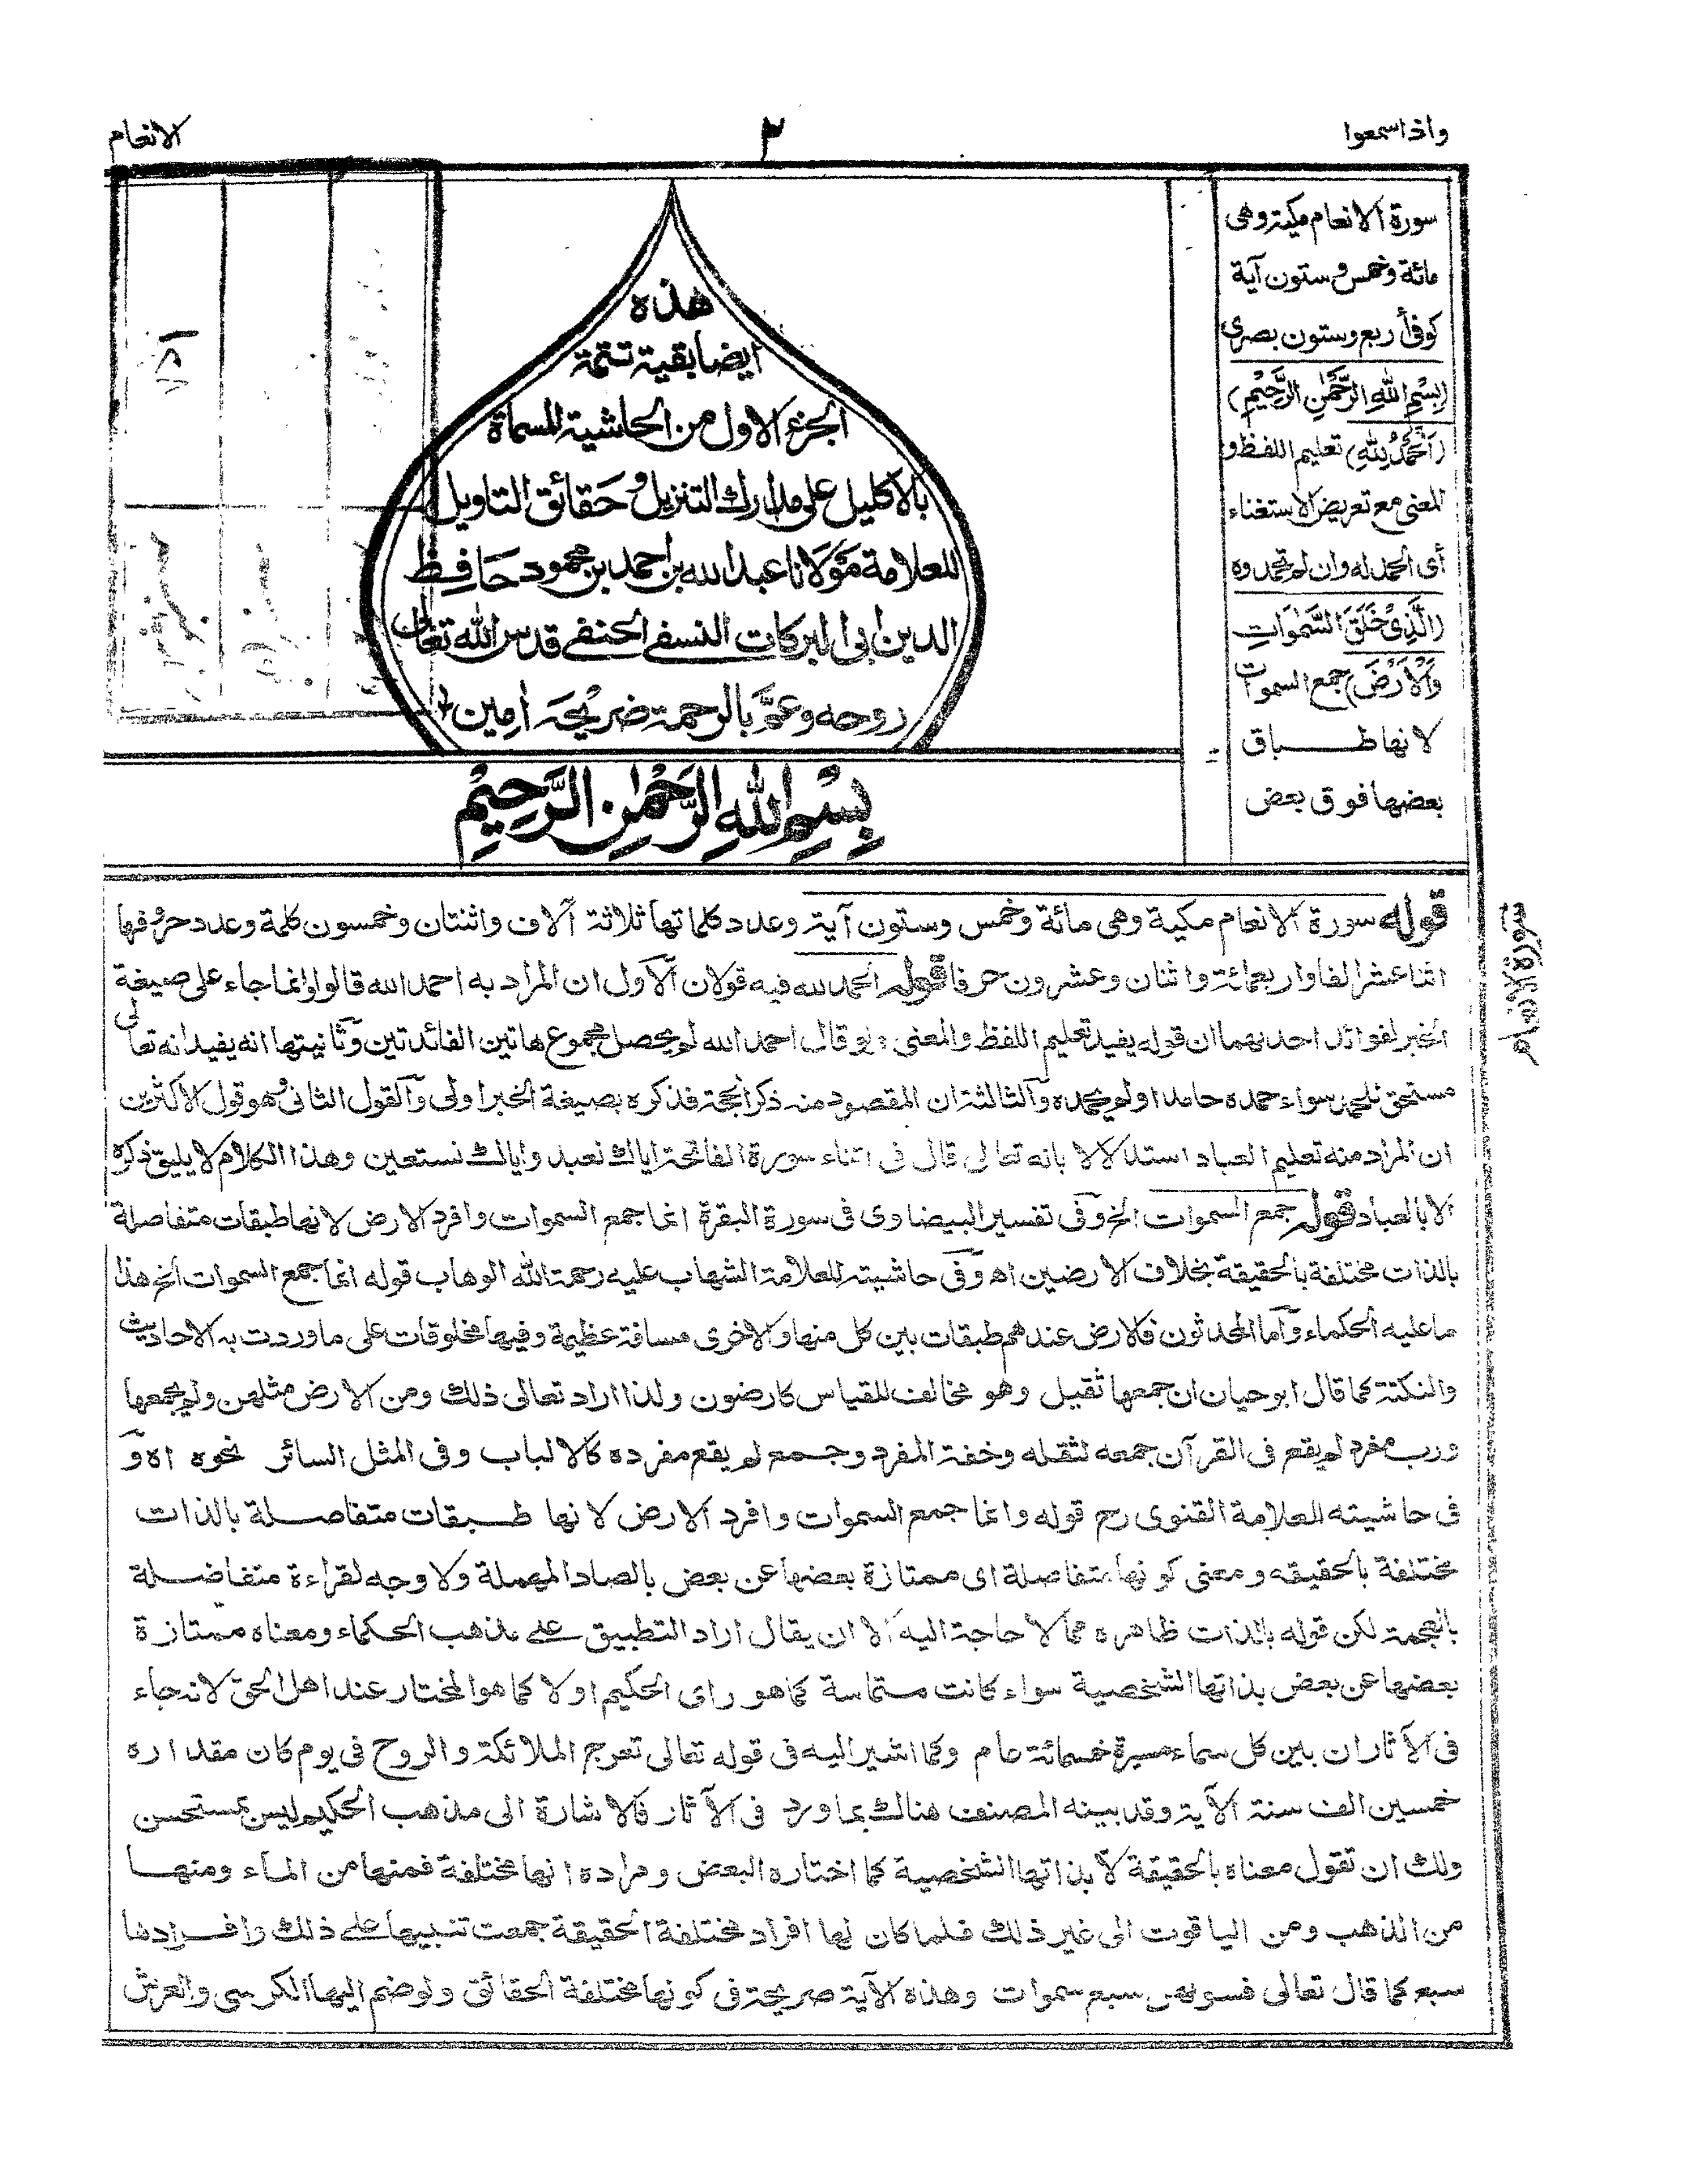 واذا سمعوا
٢
الانعام
سورة الانعام مكية وهى
مائة وخمس وستون آية
كوفى أربع وستون بصرى
(بِسْمِ اللّٰهِ الرَّحْمٰنِ الرَّحِيْمِ)
(اَلْحَمْدُ لِلّٰهِ) تعليم اللفظ و
المعنى مع تعريض الاستغناء
أى الحمد له وان لم تحمدوه
(الَّذِىْ خَلَقَ السَّمٰوَاتِ
وَالْاَرْضَ) جمع السموات
لانها طباق
بعضها فوق بعض
هذه
ايضا بقية تتمة
الجزء الاول من الحاشية المسماة
بالاكليل على مدارك التنزيل وحقائق التاويل
للعلامة مَوْلَانا عبد الله بن احمد بن محمود حَافِظ
الدين ابى البركات النسفى الحنفى قدس الله تعالى
روحه وعمَّ بالرحمة ضريحَه اٰمين
بِسْمِ اللّٰهِ الرَّحْمٰنِ الرَّحِيْمِ
قوله سورة الانعام مكية وهى مائة وخمس وستون آية وعدد كلماتها ثلاثة آلاف واثنتان وخمسون كلمة وعدد حروفها
اثنا عشر الفا واربعمائة واثنان وعشرون حرفا قوله الحمد لله فيه قولان الاول ان المراد به احمد الله قالوا وانما جاء على صيغة
الخبر لفوائد احدٮهما ان قوله يفيد تعليم اللفظ والمعنى ولو قال احمد الله لم يحصل مجموع هاتين الفائدتين وثانيتها انه يفيد انه تعالى
مستحق للحمد سواء حمده حامد او لم يحمده والثالثة ان المقصود منه ذكر الحجة فذكره بصيغة الخبر اولى والقول الثانى وهو قول الاكثرين
ان المراد منه تعليم العباد استدلالا بانه تعالى قال فى اثناء سورة الفاتحة اياك نعبد واياك نستعين وهذا الكلام لا يليق ذكره
الا بالعباد قوله جمع السموات الخ وفى تفسير البيضاوى فى سورة البقرة انما جمع السموات وافرد الارض لانها طبقات متفاصلة
بالذات مختلفة بالحقيقة بخلاف الارضين اه وفى حاشيته للعلامة الشهاب عليه رحمة الله الوهاب قوله انما جمع السموات الخ هذا
ما عليه الحكماء وأما المحدثون فالارض عندهم طبقات بين كل منها والاخرى مسافة عظيمة وفيها مخلوقات على ما وردت به الاحاديث
والنكتة كما قال ابو حيان ان جمعها ثقيل وهو مخالف للقياس كارضون ولذا اراد تعالى ذلك ومن الارض مثلهن ولم يجمعها
ورب مفرد لم يقع فى القرآن جمعه لثقله وخفة المفرد وجمع لم يقع مفرده كالالباب وفى المثل السائر نحوه اه و
فى حاشيته للعلامة القنوى رح قوله وانما جمع السموات وافرد الارض لانها طبقات متفاصلة بالذات
مختلفة بالحقيقه ومعنى كونها متفاصلة اى ممتازة بعضها عن بعض بالصاد المهملة ولا وجه لقراءة متفاضلة
بالمعجمة لكن قوله بالذات ظاهره مما لا حاجة اليه الا ان يقال اراد التطبيق على مذهب الحكماء ومعناه ممتازة
بعضها عن بعض بذاتها الشخصية سواء كانت متماسة كما هو راى الحكيم او لا كما هو المختار عند اهل الحق لانه جاء
فى الآثار ان بين كل سماء مسيرة خمسمائة عام وكما اشير اليه فى قوله تعالى تعرج الملائكة والروح فى يوم كان مقداره
خمسين الف سنة الآية وقد بينه المصنف هنالك بما ورد فى الآثار فالاشارة الى مذهب الحكيم ليس بمستحسن
ولك ان تقول معناه بالحقيقة لا بذاتها الشخصية كما اختاره البعض ومراده انها مختلفة فمنها من الماء ومنها
من الذهب ومن الياقوت الى غير ذلك فلما كان لها افراد مختلفة الحقيقة جمعت تنبيها على ذلك وافرادها
سبع كما قال تعالى فسوٮهن سبع سموات وهذه الآية صريحة فى كونها مختلفة الحقائق ولو ضم اليها الكرسى والعرش